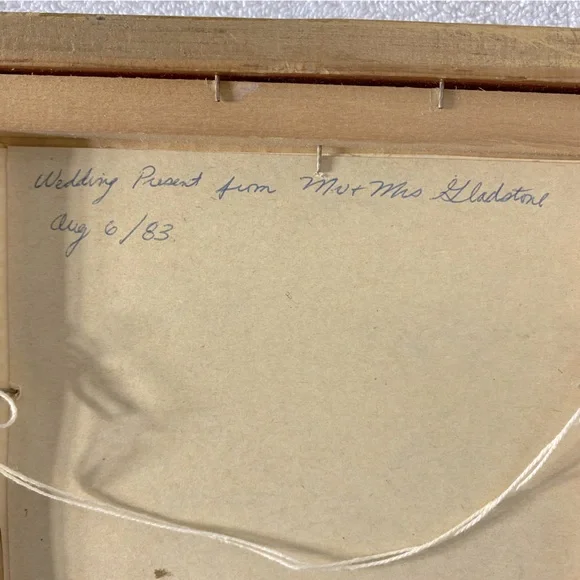 Wedding Present from Mr + Mrs Gladstone
Aug 6/83